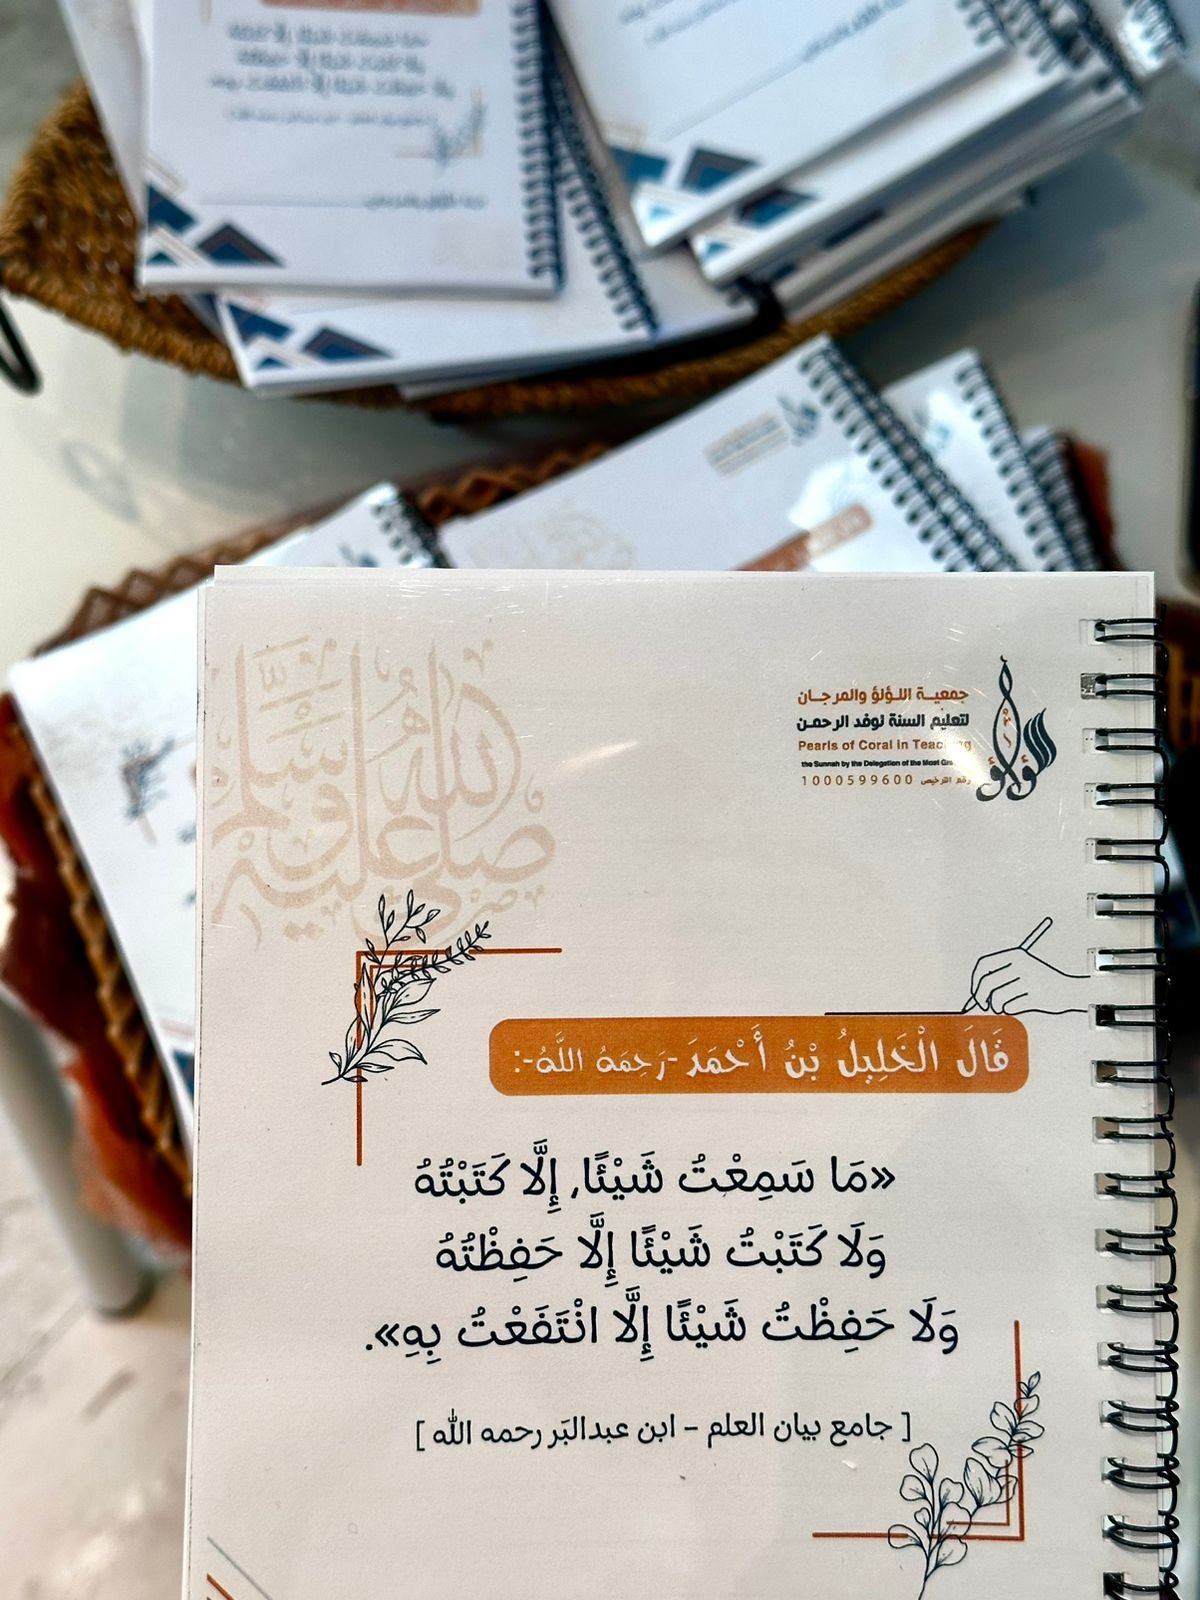 صلى الله عليه وسلم
جمعية اللؤلؤ والمرجان
لتعليم السنة لوفد الرحمن
Pearls of Coral in Teaching
the Sunnah by the Delegation of the Most
رقم الترخيص 1000599600
قَالَ الْخَلِيلُ بْنُ أَحْمَدَ -رَحِمَهُ اللَّهُ-:
«مَا سَمِعْتُ شَيْئًا, إِلَّا كَتَبْتُهُ
وَلَا كَتَبْتُ شَيْئًا إِلَّا حَفِظْتُهُ
وَلَا حَفِظْتُ شَيْئًا إِلَّا انْتَفَعْتُ بِهِ».
[ جامع بيان العلم – ابن عبدالبَر رحمه الله ]